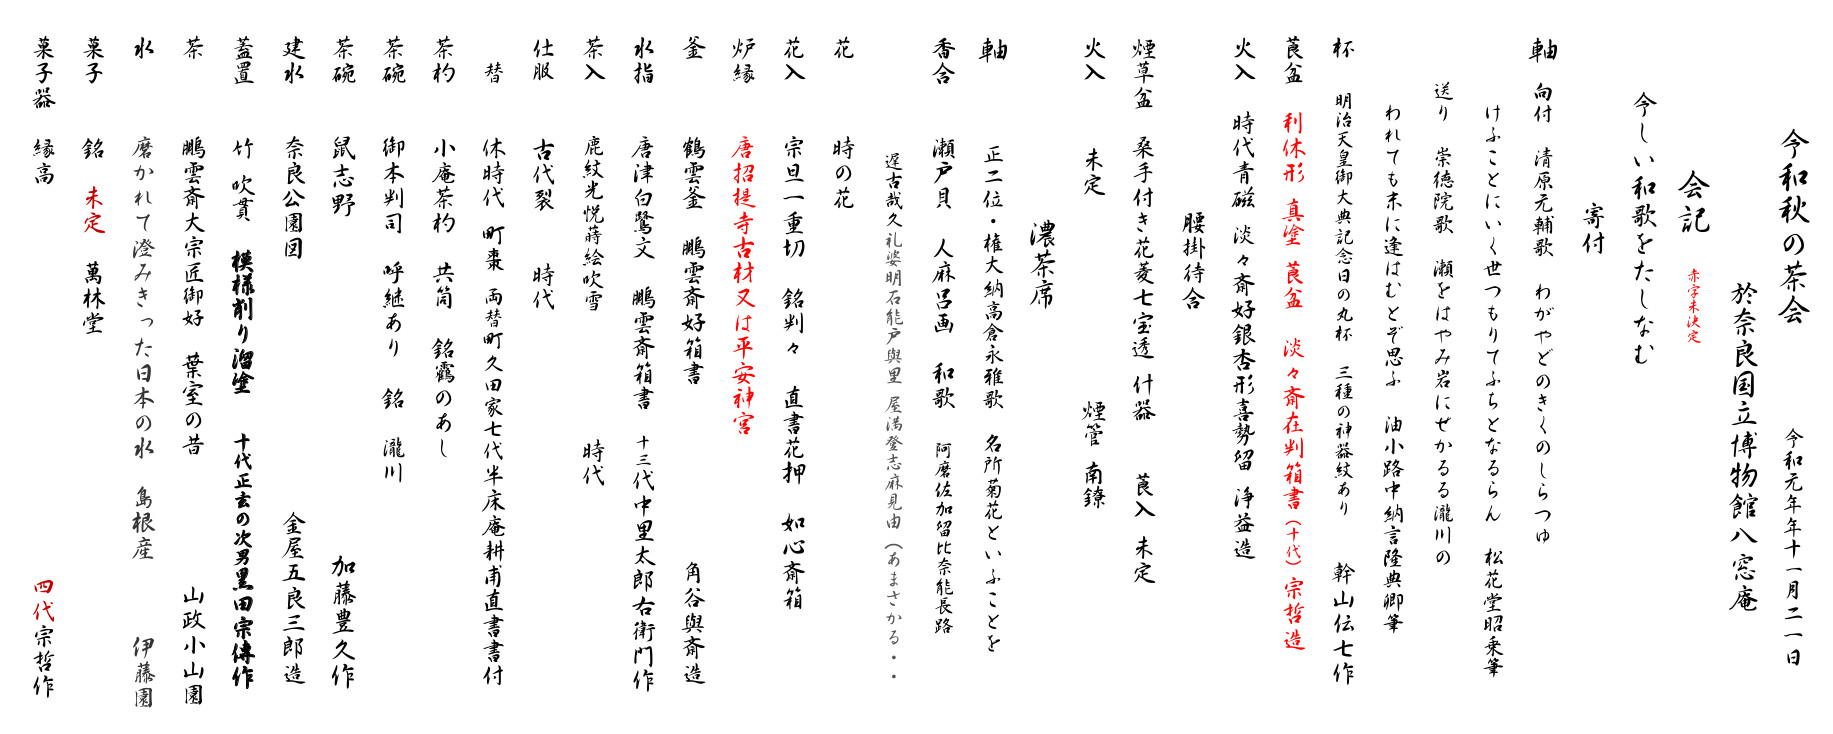 令和秋の茶会　令和元年年十一月二一日
於奈良国立博物館八窓庵
会記　赤字未決定
今しい和歌をたしなむ
寄付
軸　向付　清原元輔歌　わがやどのきくのしらつゆ
けふことにいく世つもりてふちとなるらん　松花堂昭乗筆
送り　崇徳院歌　瀬をはやみ岩にせかるる瀧川の
われても末に逢はむとぞ思ふ　油小路中納言隆典卿筆
杯　明治天皇御大典記念日の丸杯　三種の神器紋あり　幹山伝七作
莨盆　利休形　真塗　莨盆　淡々斎在判箱書（十代）宗哲造
火入　時代青磁　淡々斎好銀杏形喜勢留　浄益造
腰掛待合
煙草盆　桑手付き花菱七宝透　什器　莨入　未定
火入　未定　煙管　南鐐
濃茶席
軸　正二位・権大納高倉永雅歌　名所菊花といふことを
香合　瀬戸貝　人麻呂画　和歌　阿磨佐加留比奈能長路
遅古哉久礼婆明石能戸與里　屋満登志麻見由（あまさかる・・
花　時の花
花入　宗旦一重切　銘判々　直書花押　如心斎箱
炉縁　唐招提寺古材又は平安神宮
釜　鶴雲釜　鵬雲斎好箱書　角谷與斎造
水指　唐津白鷺文　鵬雲斎箱書　十三代中里太郎右衛門作
茶入　鹿紋光悦蒔絵吹雪　時代
仕服　古代裂　時代
替　休時代　町棗　両替町久田家七代半床庵耕甫直書書付
茶杓　小庵茶杓　共筒　銘靏のあし
茶碗　御本判司　呼継あり　銘　瀧川
茶碗　鼠志野　加藤豊久作
建水　奈良公園図　金屋五良三郎造
蓋置　竹　吹貫　模様削り溜塗　十代正玄の次男黒田宗傳作
茶　鵬雲斎大宗匠御好　葉室の昔　山政小山園
水　磨かれて澄みきった日本の水　島根産　伊藤園
菓子　銘　未定　萬林堂
菓子器　縁高　四代宗哲作